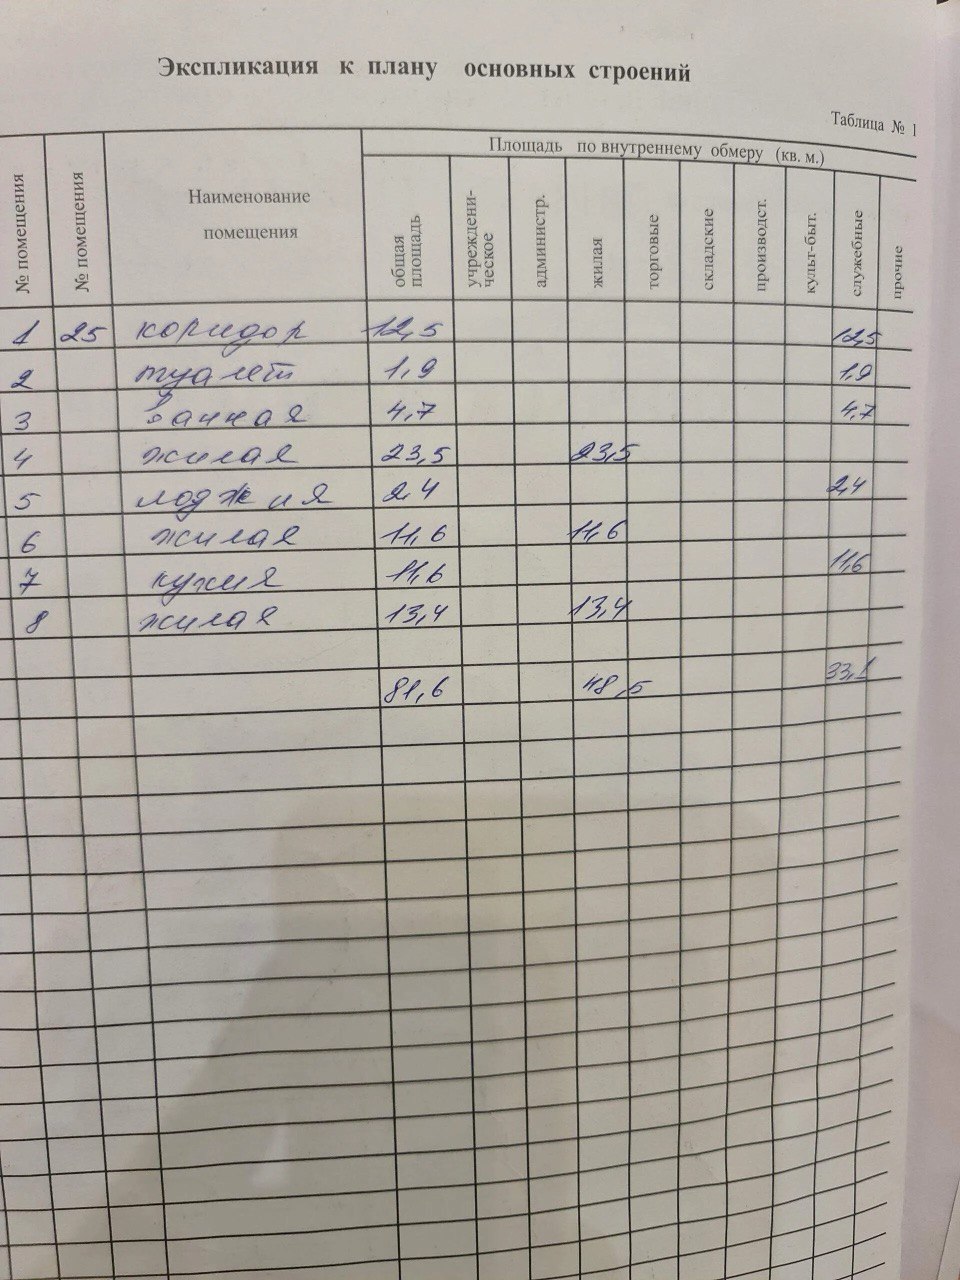 Экспликация к плану основных строений
Таблица № 1
№ помещения
№ помещения
Наименование помещения
Площадь по внутреннему обмеру (кв. м.)
общая площадь
учреждени-ческое
администр.
жилая
торговые
складские
производст.
культ-быт.
служебные
прочие
1 25 коридор 12,5 12,5
2 туалет 1,9 1,9
3 ванная 4,7 4,7
4 жилая 23,5 23,5
5 лоджия 2,4 2,4
6 жилая 11,6 11,6
7 кухня 11,6 11,6
8 жилая 13,4 13,4
81,6 48,5 33,1